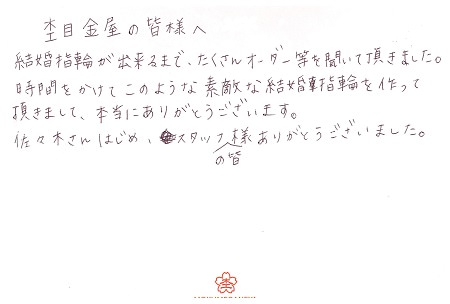 杢目金屋の皆様へ
結婚指輪が出来るまで、たくさんオーダー等を聞いて頂きました。
時間をかけてこのような素敵な結婚指輪を作って
頂きまして、本当にありがとうございます。
佐々木さんはじめ、スタッフの皆様ありがとうございました。